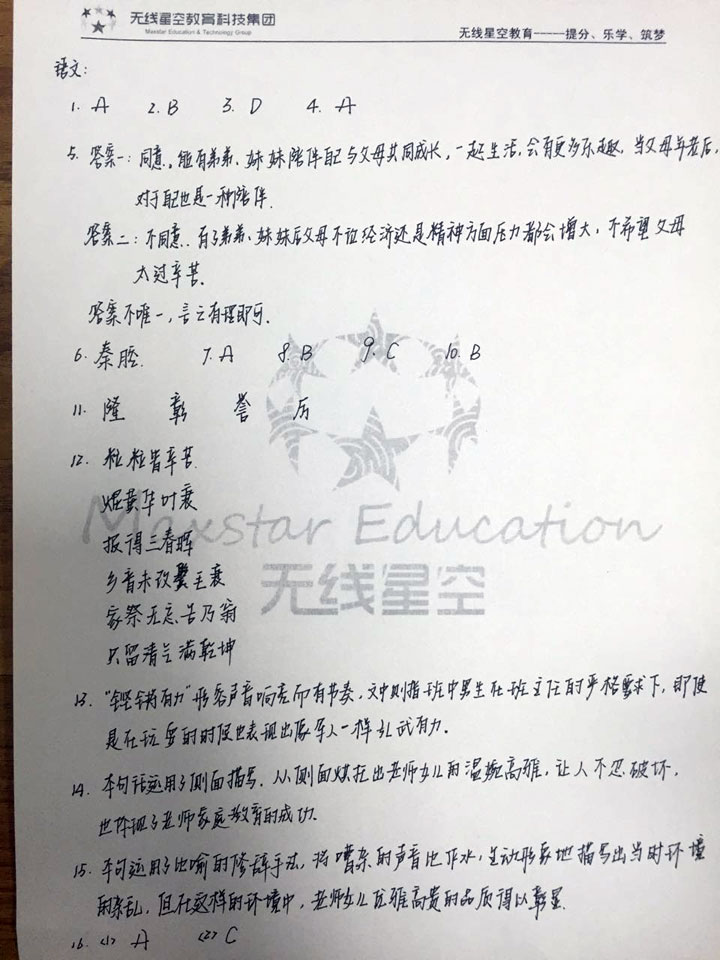 无线星空教育科技集团
Maxstar Education & Technology Group
无线星空教育-----提分、乐学、筑梦
语文:
1. A 2. B 3. D 4. A
5. 答案一: 同意。能有弟弟、妹妹陪伴自己与父母共同成长,一起生活,会有更多乐趣,当父母年老后,
对于自己也是一种陪伴.
答案二: 不同意. 有了弟弟、妹妹后父母不论经济还是精神方面压力都会增大, 不希望父母
太过辛苦.
答案不唯一, 言之有理即可.
6. 秦腔. 7. A 8. B 9. C 10. B
11. 隆 彰 誉 厉
12. 粒粒皆辛苦.
焜黄华叶衰
报得三春晖
乡音未改鬓毛衰
家祭无忘告乃翁
只留清气满乾坤
Maxstar Education
无线星空
13. “铿锵有力”形容声音响亮而有节奏, 文中则指班中男生在班主任的严格要求下, 即使
是在玩耍的时候也表现出像军人一样孔武有力.
14. 本句话运用了侧面描写, 从侧面烘托出老师女儿的温婉高雅, 让人不忍破坏,
也体现了老师家庭教育的成功.
15. 本句运用了比喻的修辞手法, 将嘈杂的声音比作水, 生动形象地描写出当时环境
的杂乱, 但在这样的环境中, 老师女儿优雅高贵的品质得以彰显.
16. (1) A (2) C